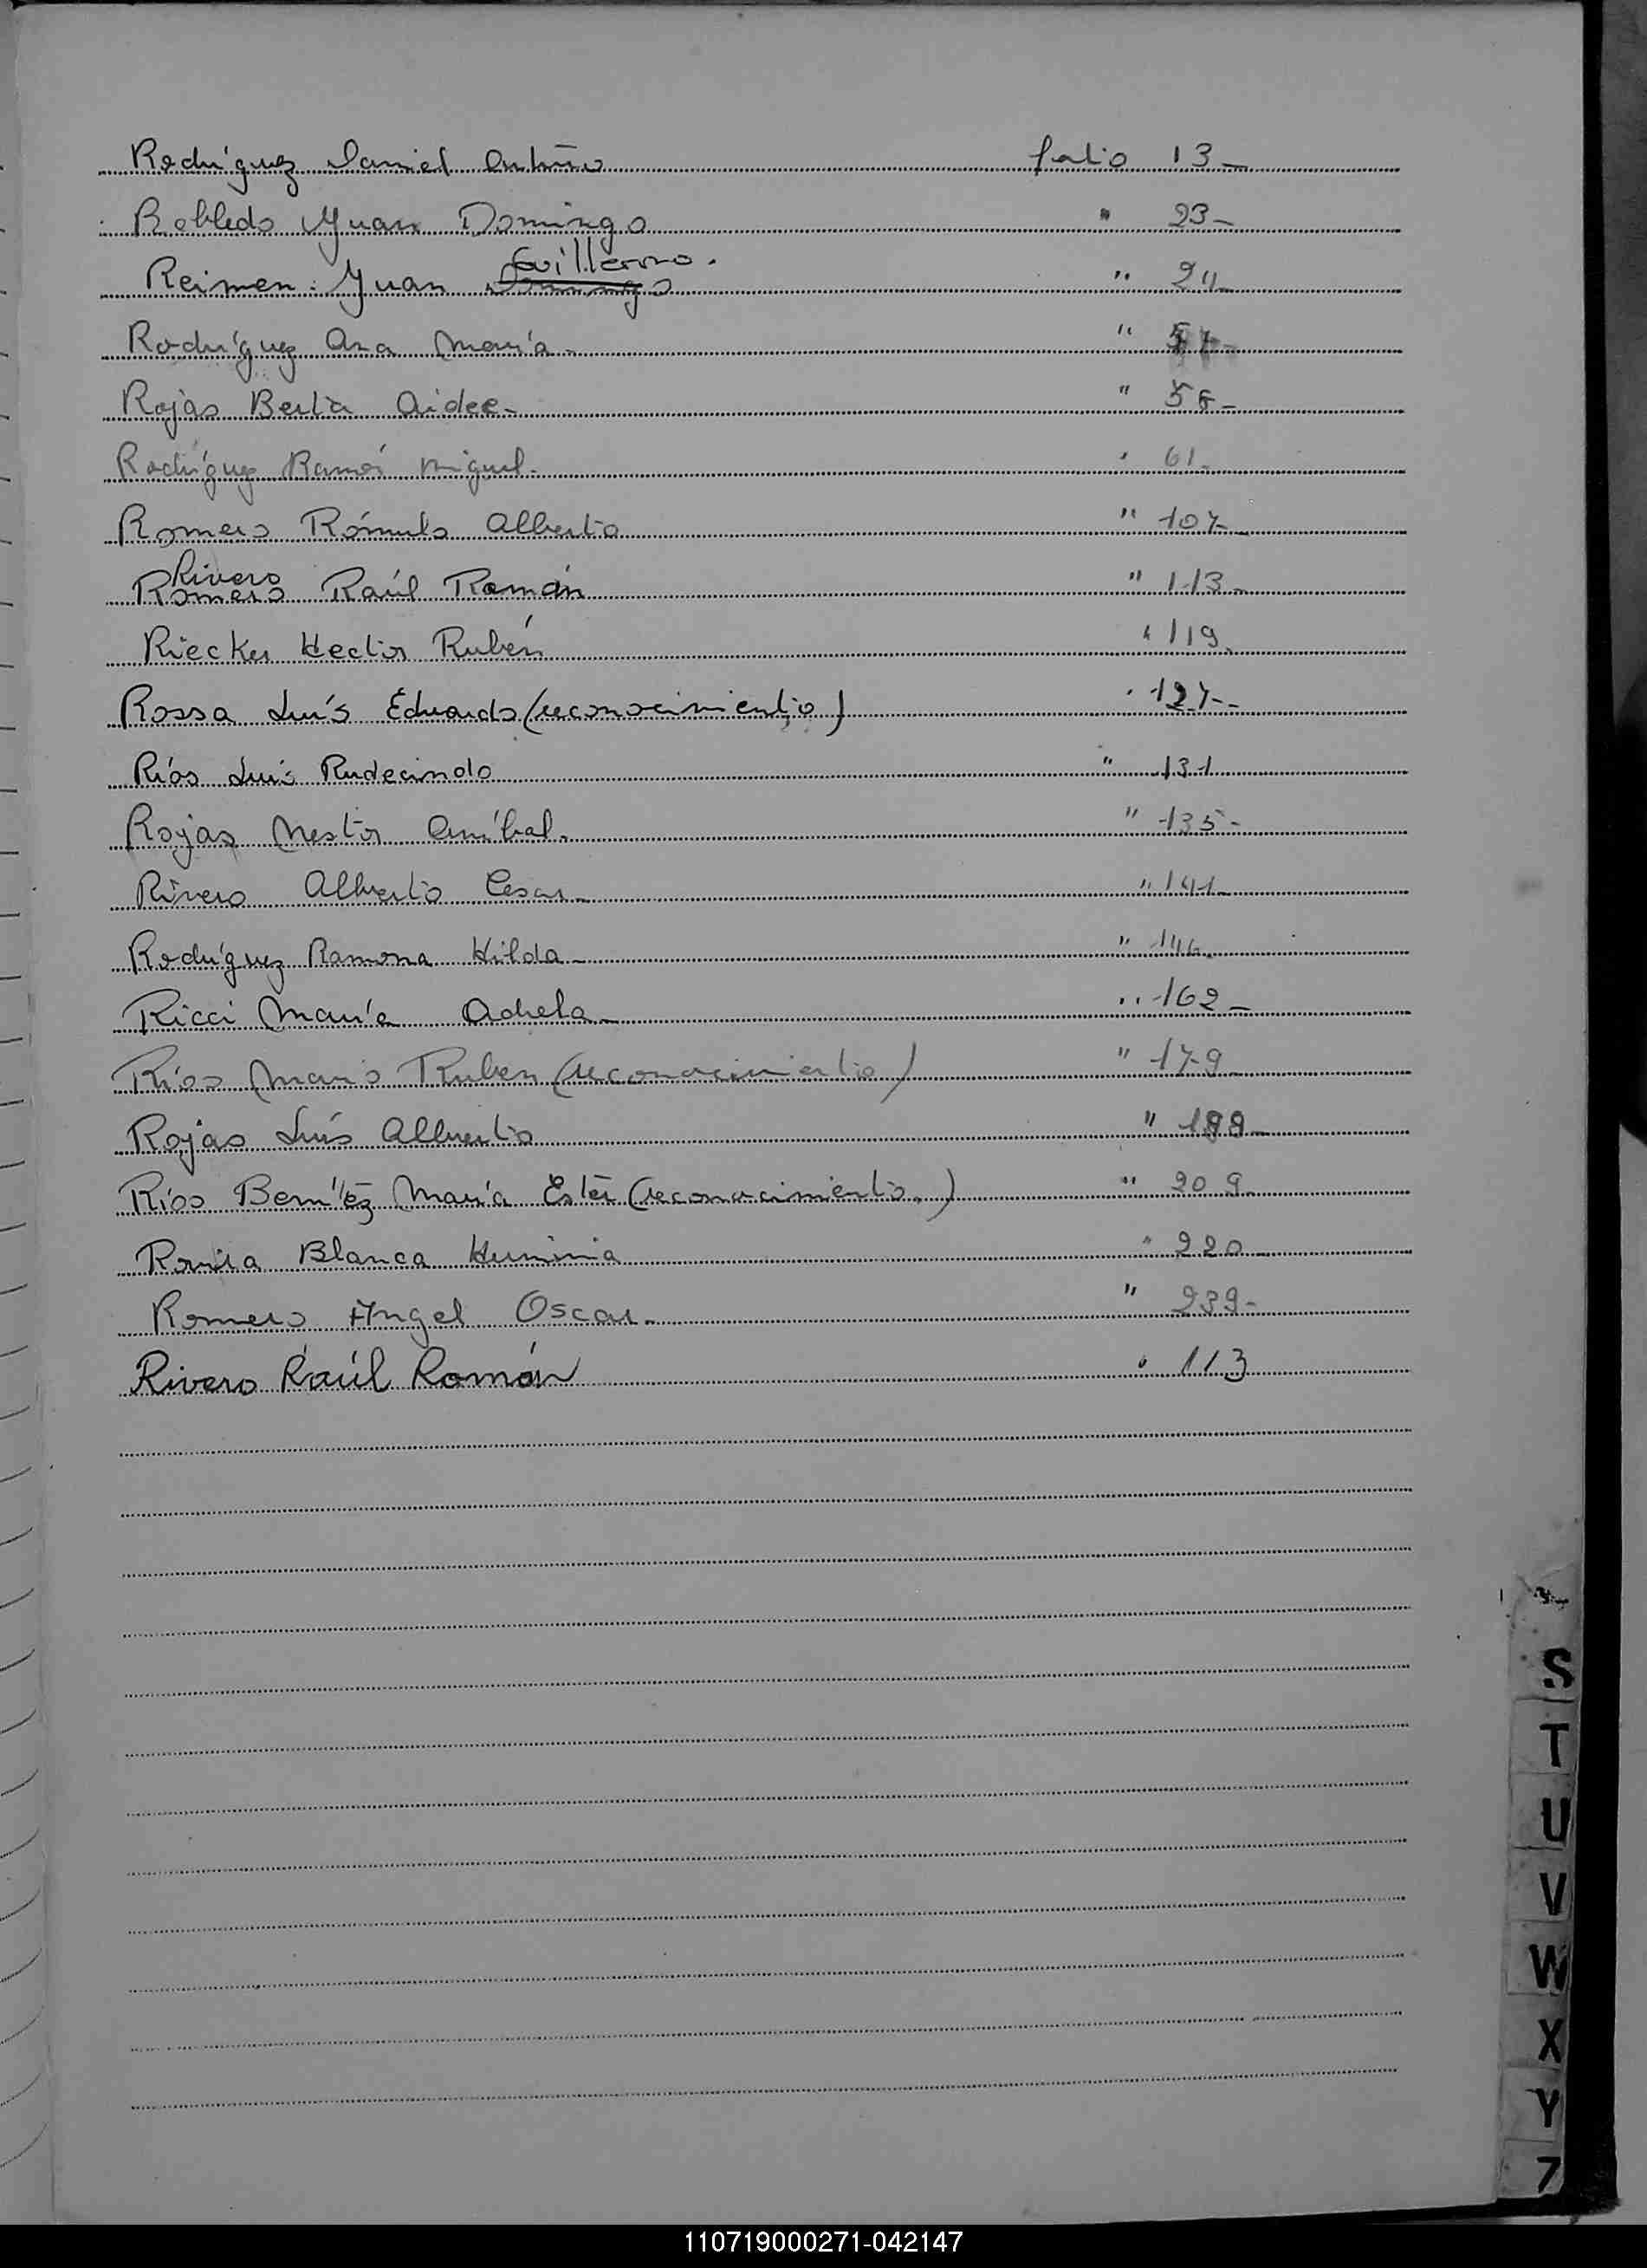 Rodríguez Daniel Antonio folio 13-
Robledo Yuan Domingo " 23-
Guillermo.
Reimen: Yuan Domingo " 24-
Rodríguez Ana María-
Rojas Berta Aidee- " 56-
Rodríguez Ramón Miguel- " 61-
Romero Rómulo Alberto " 107-
Rivero
Romero Raúl Román " 113-
Riecker Hector Rubén " 119.
Rossa Luís Eduardo (reconocimiento) " 127-
Ríos Luis Rudecindo " 131
Rojas Nestor Aníbal- " 135-
Rivero Alberto Cesar- " 141-
Rodríguez Ramona Hilda- " 146.
Ricci María Adhela- " 162-
Ríos Mario Ruben (reconocimiento) " 179-
Rojas Luís Alberto " 188-
Ríos Bení'tez María Ester (reconocimiento.) " 209-
Blanca Herminia " 220
Romero Angel Oscar- " 239-
Rivero Raúl Román " 113
S
T
U
V
W
X
Y
Z
110719000271-042147